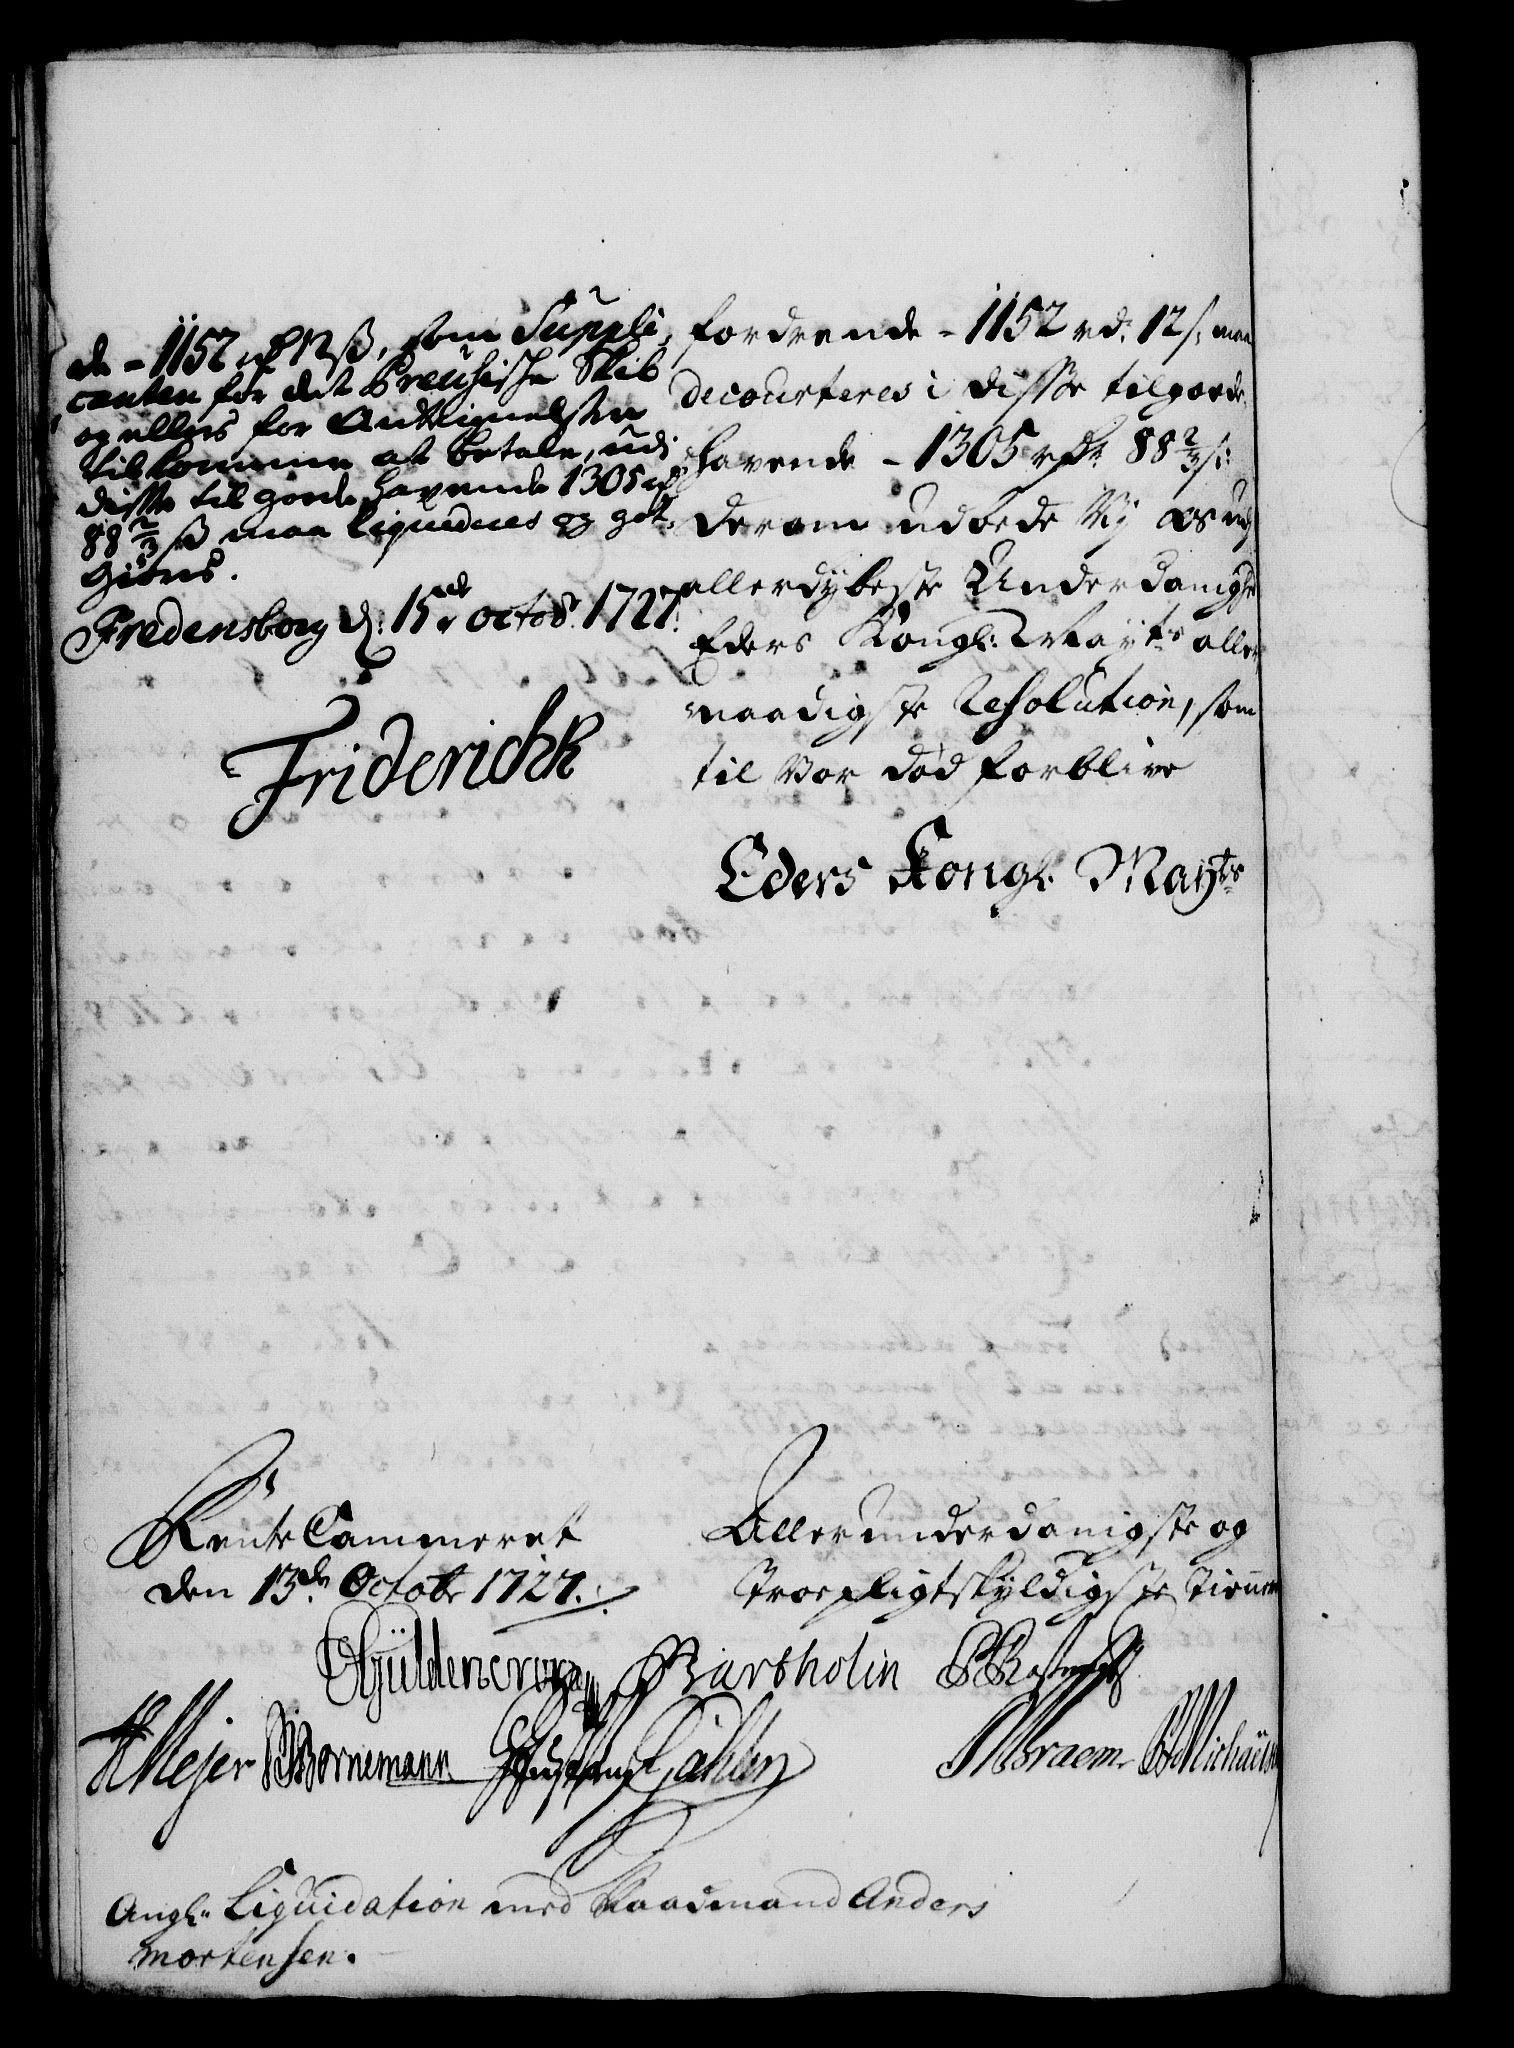 de - 1152 rd 12 ß, som Suppli-
canten for det Preusiske Skib
og ellers for Antegnelsen
tilkomme at betale, udi
disse til gode havende 1305 rd
88 2/3 ß maa liqvideres og got-
giøres.
Fredensborg d: 15de octobr: 1727.
Friderich R
fordrende - 1152 rd: 12 s: maa
decourteres i disse tilgode
havende - 1305 rdr. 88 2/3 s:
derom udbede Vy os udj
allerdybeste Underdanighed
Eders Kongl: Mayts aller
naadigste Resolution, som
til Vor død forblive
Eders Kongl: Mayts
Rente Cammeret
den 13de Octobr 1727.
Allerunderdanigste og
Troepligtskyldigste Tienere
Güldencrone Bartholin
H Meyer Bornemann
Braem Michaelsen
Angl: Liquidation med Raadmand Anders
Mortensen.